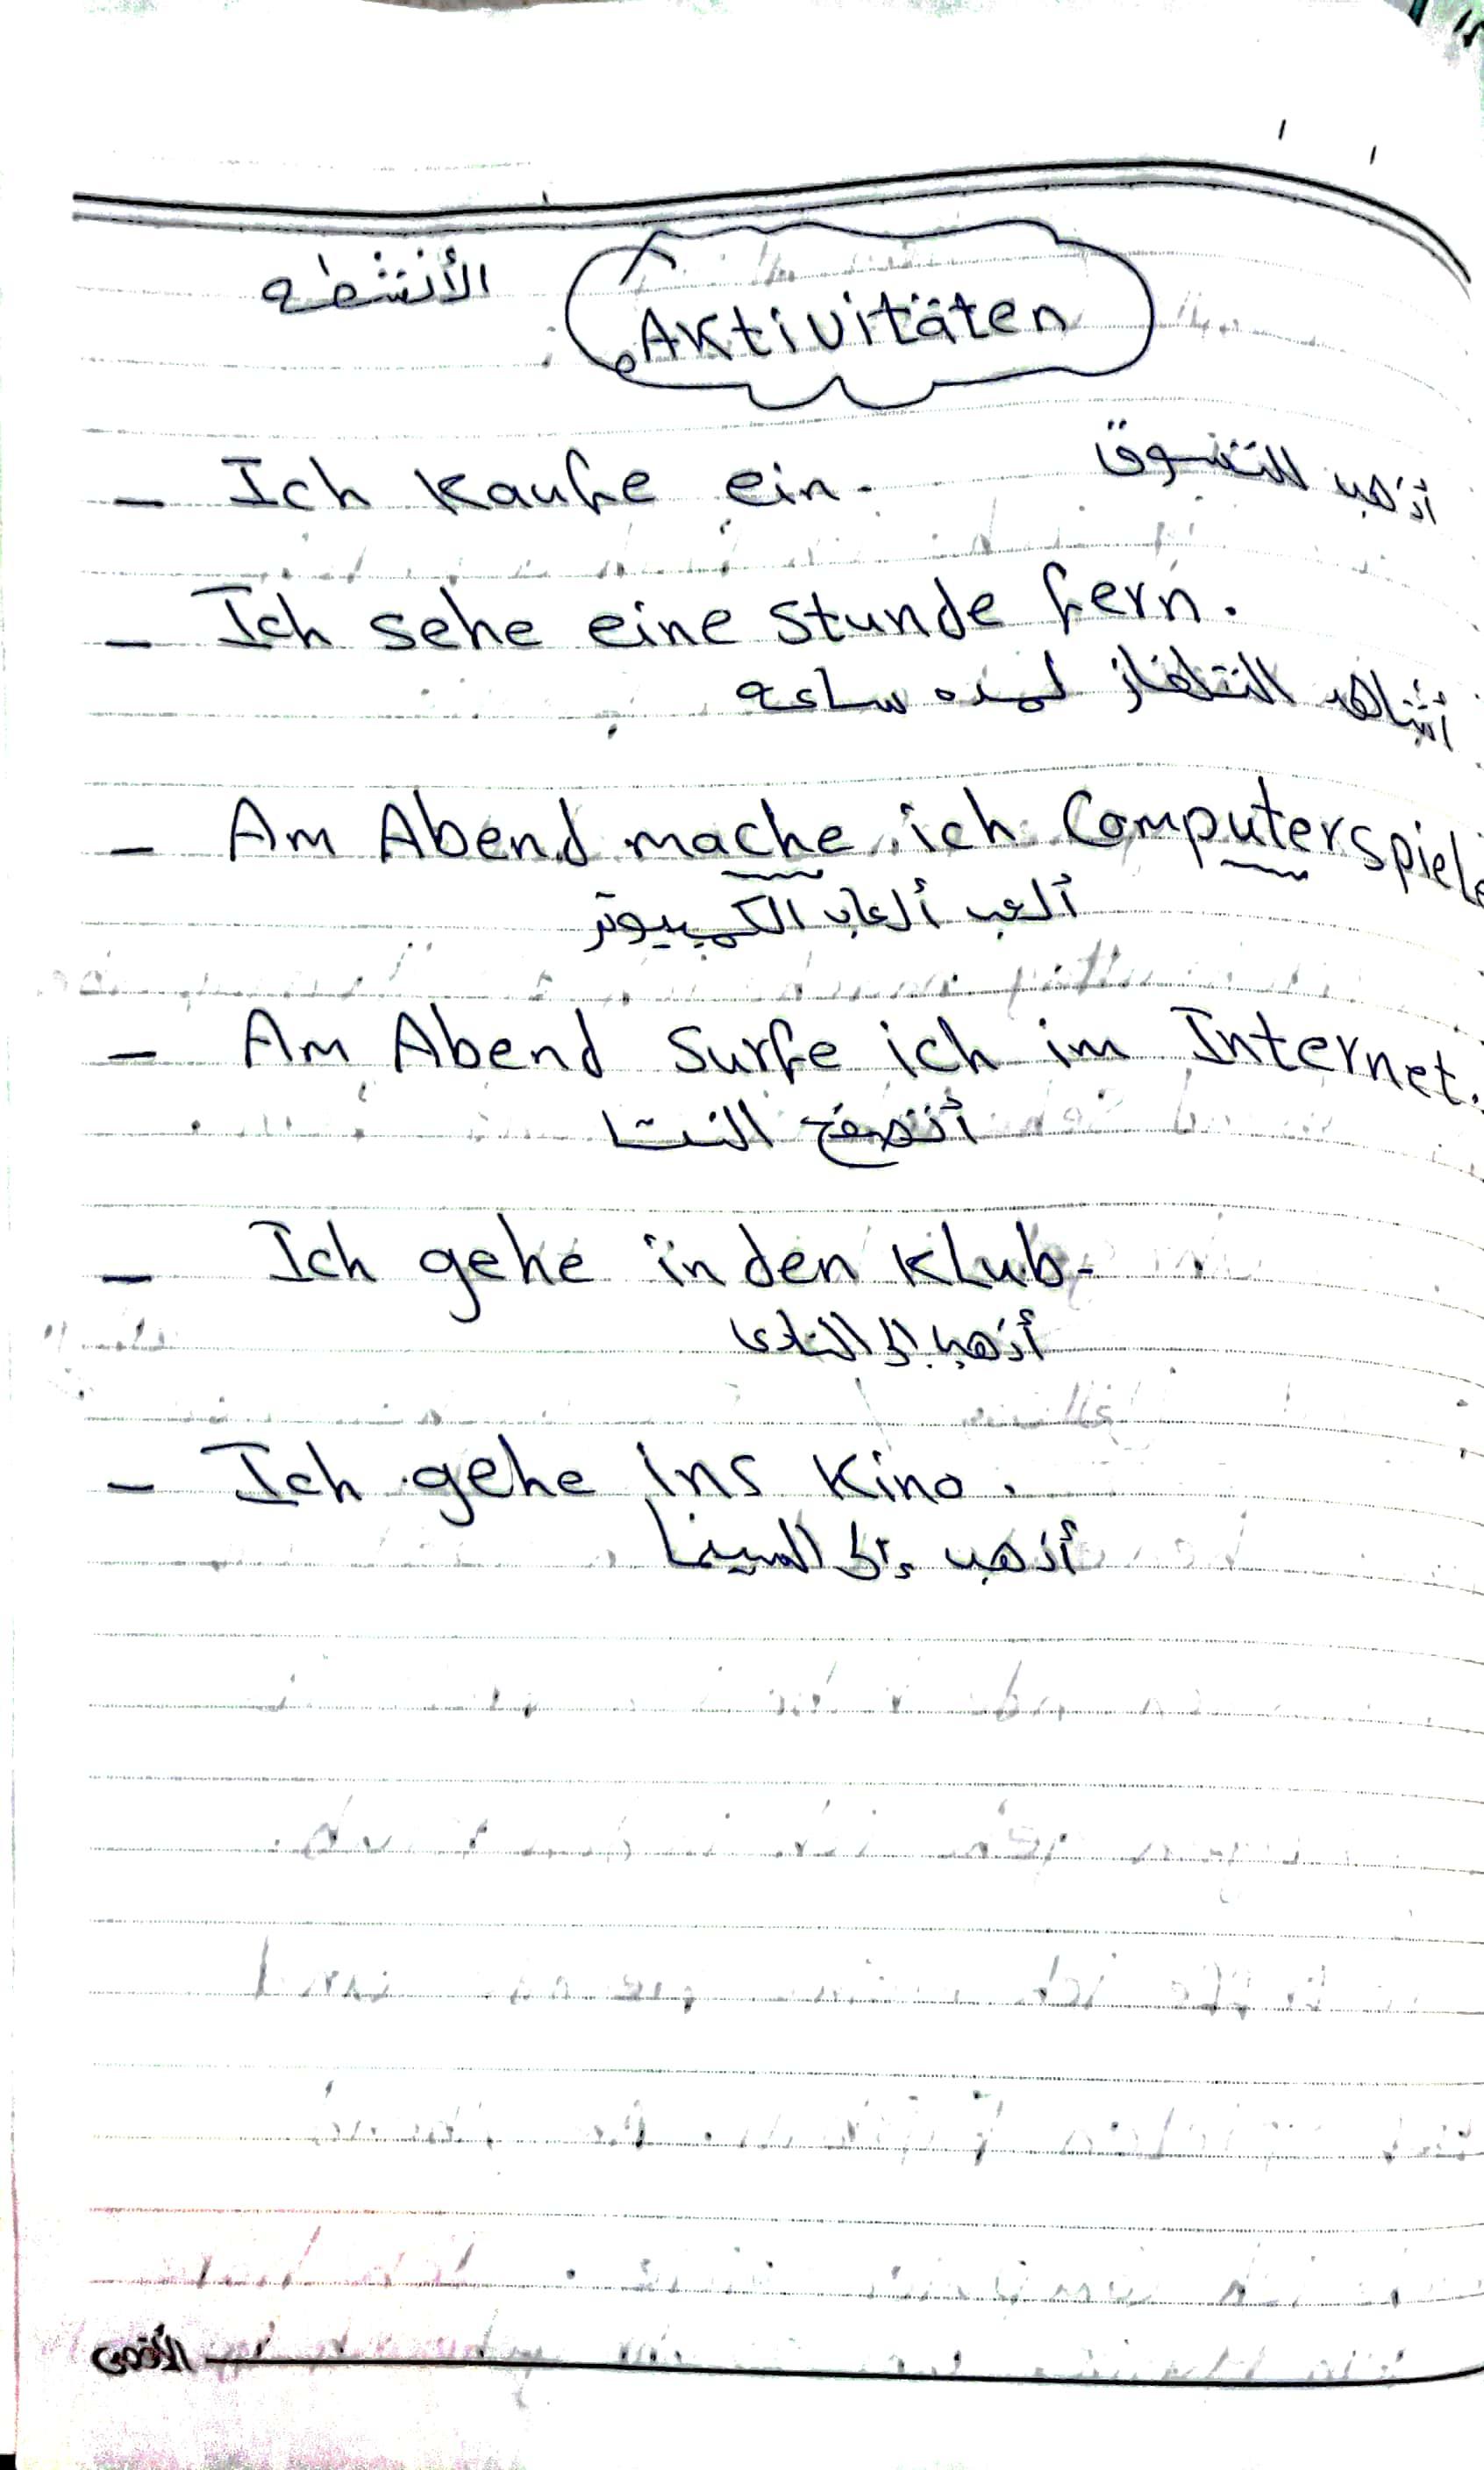 Aktivitäten الأنشطه
- Ich kaufe ein. أذهب للتسوق
- Ich sehe eine stunde fern.
أشاهد التلفاز لمده ساعه
- Am Abend mache ich Computerspiele
ألعب ألعاب الكمبيوتر
- Am Abend surfe ich im Internet.
أتصفح النت
- Ich gehe in den Klub-
أذهب إلى النادى
- Ich gehe ins Kino.
أذهب إلى السينما
الأقصى